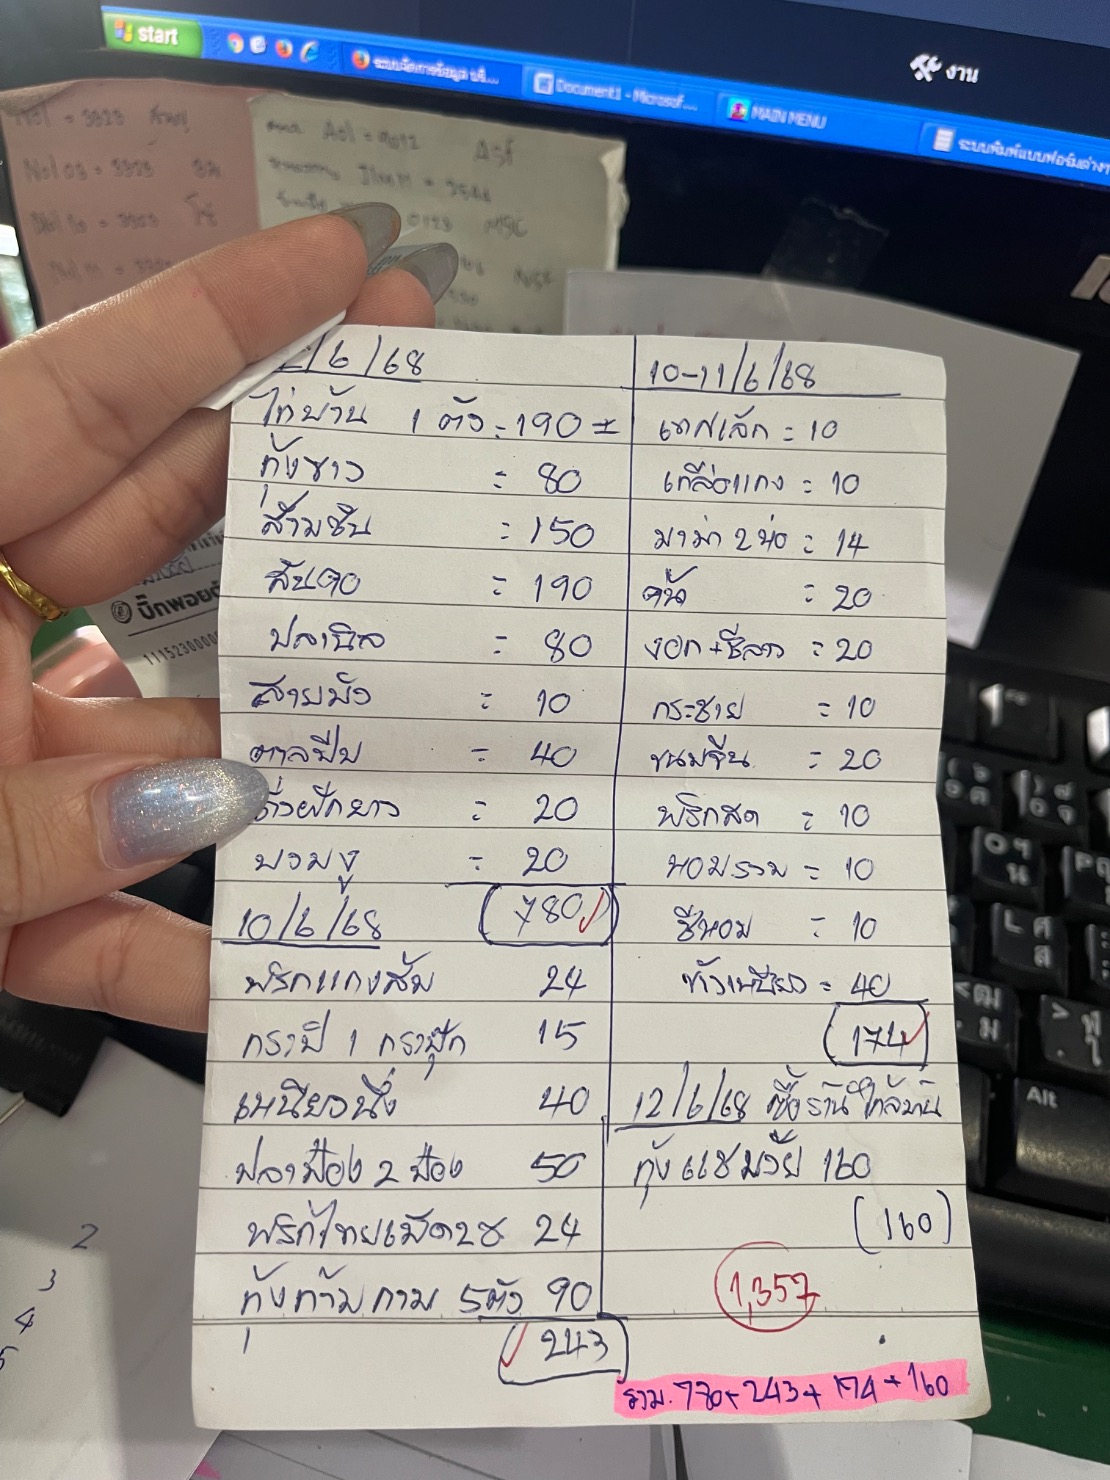 start
ระบบจัดการข้อมูล
Document1 - Microsof...
MAIN MENU
ระบบพิมพ์แบบฟอร์มต่างๆ
งาน
/6/68
ไก่บ้าน 1 ตัว = 190 =
กุ้งขาว = 80
สามชั้น = 150
สันคอ = 190
ปลานิล = 80
สายบัว = 10
ตาลปีบ = 40
ถั่วฝักยาว = 20
บวบงู = 20
(780)
10/6/68
พริกแกงส้ม 24
กะปิ 1 กระปุก 15
เหนียวนึ่ง 40
ปลาป๋อง 2 ป๋อง 50
พริกไทยเม็ด 24
กุ้งก้ามกราม 5 ตัว 90
243
10-11/6/68
= 10
เกลือแกง = 10
มาม่า 2 ห่อ = 14
= 20
งอก + ชีลาว = 20
กระชาย = 10
ขนมจีน = 20
พริกสด = 10
หอมรวม = 10
ชีหอม = 10
ข้าวเหนียว = 40
(174)
12/6/68 ซื้อร้านใกล้บ้าน
กุ้งแชบ๊วย 160
(160)
1,357
รวม. 780+243+174+160
บิ๊กพอยต์
Alt
2
3
4
5